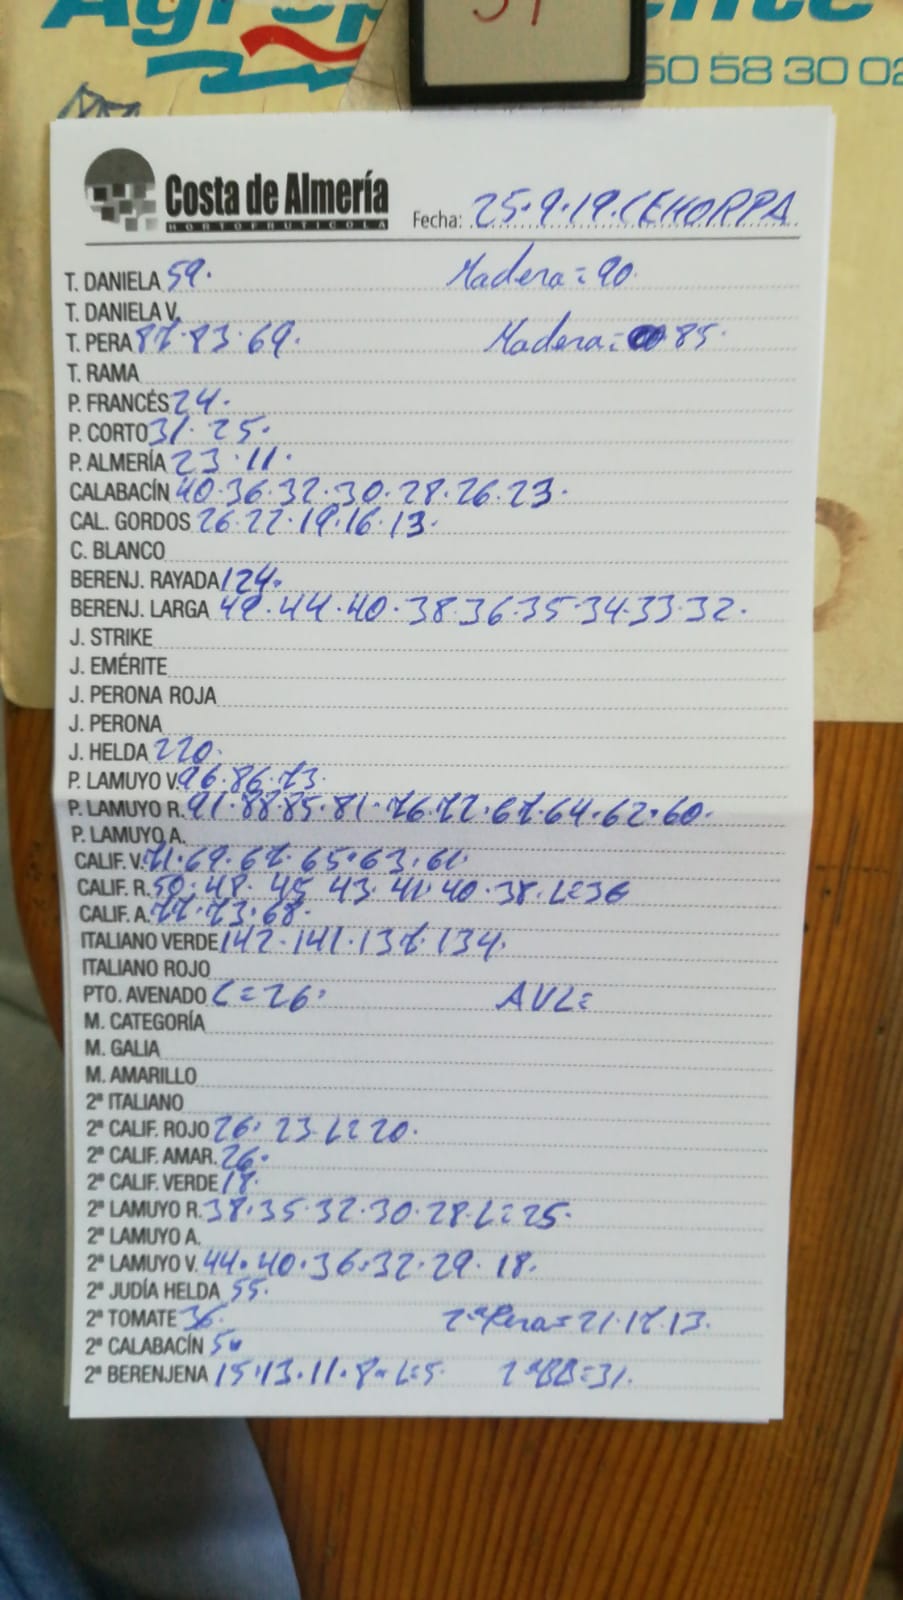 50 58 30 02
Costa de Almería
HORTOFRUTICOLA
Fecha: 25.9.19. CEHORPA
T. DANIELA 59. Madera = 90.
T. DANIELA V.
T. PERA 87.83.69. Madera = 85.
T. RAMA
P. FRANCÉS 24.
P. CORTO 31. 25.
P. ALMERÍA 23.11.
CALABACÍN 40.36.32.30.28.26.23.
CAL. GORDOS 26.22.19.16.13.
C. BLANCO
BERENJ. RAYADA 124.
BERENJ. LARGA 49.44.40.38.36.35.34.33.32.
J. STRIKE
J. EMÉRITE
J. PERONA ROJA
J. PERONA
J. HELDA 220.
P. LAMUYO V. 96.86.73.
P. LAMUYO R. 91.88.85.81.76.72.67.64.62.60.
P. LAMUYO A.
CALIF. V. 71.69.67.65.63.61.
CALIF. R. 50.48.45.43.41.40.38.L=36
CALIF. A. 77.73.68.
ITALIANO VERDE 142.141.137.134.
ITALIANO ROJO
PTO. AVENADO C=26. AVL=
M. CATEGORÍA
M. GALIA
M. AMARILLO
2ª ITALIANO
2ª CALIF. ROJO 26. 23.L=20.
2ª CALIF. AMAR. 26.
2ª CALIF. VERDE 18.
2ª LAMUYO R. 38.35.32.30.28.L=25.
2ª LAMUYO A.
2ª LAMUYO V. 44.40.36.32.29.18.
2ª JUDÍA HELDA 55.
2ª TOMATE 36. 2ªPera=21.17.13.
2ª CALABACÍN 5.
2ª BERENJENA 15.13.11.8.L=5. 2ªBB=31.